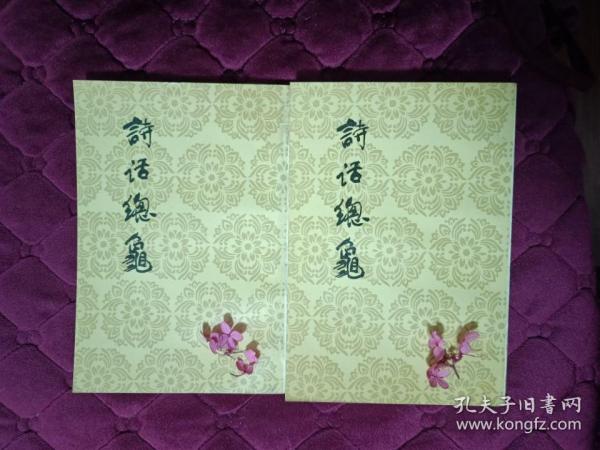 詩话總龜
詩话總龜
孔夫子旧書网
www.kongfz.com